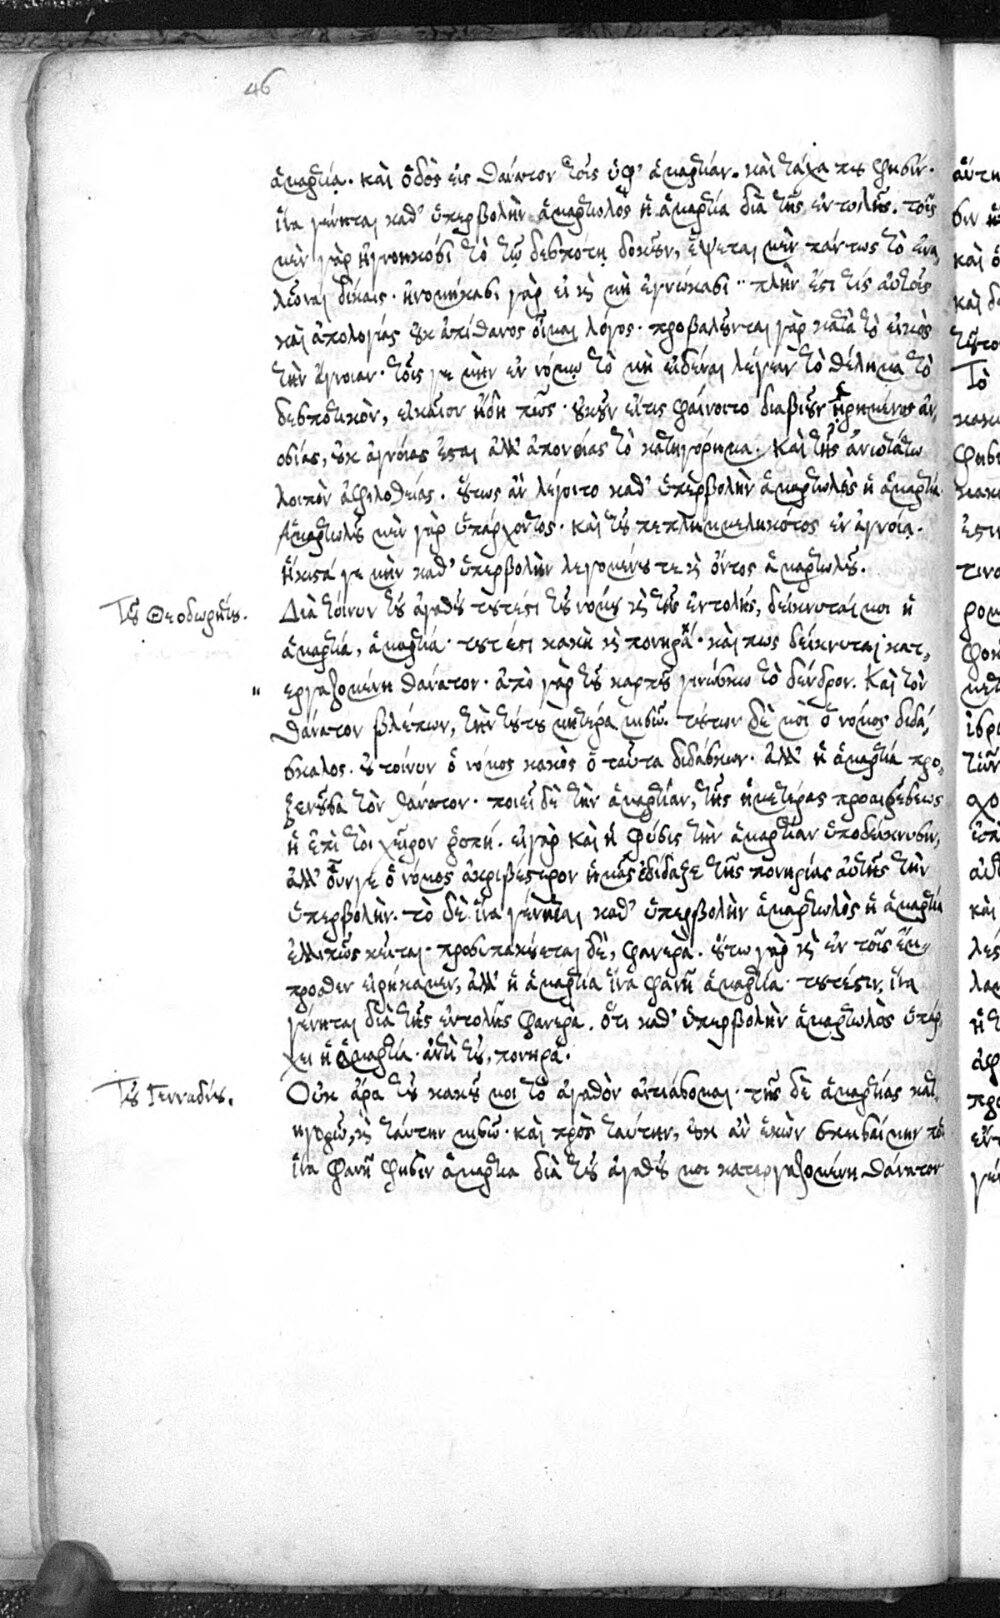 46
ἁμαρτία. καὶ ὁδὸς εἰς θάνατον τοῖς ὑφ' ἁμαρτίαν. καὶ τάχα που φησίν.
ἵνα γένηται καθ' ὑπερβολὴν ἁμαρτωλὸς ἡ ἁμαρτία διὰ τῆς ἐντολῆς. τοῖς
μὲν γὰρ ἠγνοηκόσι τὸ τῷ δεσπότῃ δοκοῦν, ἕψεται μὲν πάντως τὸ
δίκαις. ἠνομήκασι γὰρ εἰ καὶ μὴ ἐγνώκασι. πλὴν ἔστι τίς αὐτοῖς
καὶ ἀπολογίας οὐκ ἀπίθανος οἶμαι λόγος. προβαλοῦνται γὰρ κατὰ τὸ εἰκὸς
τὴν ἄγνοιαν. τοῖς γε μὴν ἐν νόμῳ τὸ μὴ εἰδέναι λέγειν τὸ θέλημα τὸ
δεσποτικὸν, εἰκαῖον ἤδη πῶς. οὐκοῦν εἴτις φαίνοιτο διαβιοῦν ᾑρημένος ἀν
οσίας, οὐκ ἀγνοίας ἔσται ἀλλ' ἀπονοίας τὸ κατηγόρημα. καὶ τῆς ἀνωτάτω
λοιπὸν ἀφιλοθεΐας. οὕτως ἂν λέγοιτο καθ' ὑπερβολὴν ἁμαρτωλὸς ἡ ἁμαρτία
ἁμαρτωλοῦ μὲν γὰρ ὑπάρχοντος. καὶ τοῦ πεπλημμεληκότος ἐν ἀγνοίᾳ.
ἥκιστά γε μὴν καθ' ὑπερβολὴν λεγομένου τε καὶ ὄντος ἁμαρτωλοῦ.
Τοῦ Θεοδωρήτου. Διὰ τοίνυν τοῦ ἀγαθοῦ τουτέστι τοῦ νόμου καὶ τῆς ἐντολῆς, δείκνυταί μοι ἡ
ἁμαρτία, ἁμαρτία. τουτέστι κακὴ καὶ πονηρὰ. καὶ πως δείκνυται κατ
εργαζομένη θάνατον. ἀπὸ γὰρ τοῦ καρποῦ γινώσκω τὸ δένδρον. Καὶ τὸν
θάνατον βλέπων, τὴν τούτου μητέρα μισῶ. τούτων δὲ μοὶ ὁ νόμος διδά
σκαλος. οὐ τοίνυν ὁ νόμος κακὸς ὁ ταῦτα διδάσκων. ἀλλ' ἡ ἁμαρτία προ
ξενοῦσα τὸν θάνατον. ποιεῖ δὲ τὴν ἁμαρτίαν, τῆς ἡμετέρας προαιρέσεως
ἡ ἐπὶ τὸ χεῖρον ῥοπή. εἰ γὰρ καὶ ἡ φύσις τὴν ἁμαρτίαν ὑποδείκνυσιν,
ἀλλ' οὖν γε ὁ νόμος ἀκριβέστερον ἡμᾶς ἐδίδαξε τῆς πονηρίας αὐτῆς τὴν
ὑπερβολὴν. τὸ δὲ ἵνα γένηται καθ' ὑπερβολὴν ἁμαρτωλὸς ἡ ἁμαρτία
ἐλλιπῶς κεῖται. προσυπακούεται δὲ, φανερὰ. οὕτω γὰρ καὶ ἐν τοῖς ἔμ
προσθεν εἰρήκαμεν, ἀλλ' ἡ ἁμαρτία ἵνα φανῇ ἁμαρτία. τουτέστιν, ἵνα
γένηται διὰ τῆς ἐντολῆς φανερὰ. ὅτι καθ' ὑπερβολὴν ἁμαρτωλὸς ὑπάρ
χει ἡ ἁμαρτία. ἀντὶ τοῦ, πονηρά.
Τοῦ Γενναδίου. Οὐκ ἄρα τοῦ κακοῦ μοι τὸ ἀγαθὸν αἰτιάσομαι. τῆς δὲ ἁμαρτίας κατ
ηγορῶ, καὶ ταύτην μισῶ. καὶ πρὸς ταύτην, οὐκ ἂν ἑκὼν
ἵνα φανῇ φησὶν ἁμαρτία διὰ τοῦ ἀγαθοῦ μοι κατεργαζομένη θάνατον